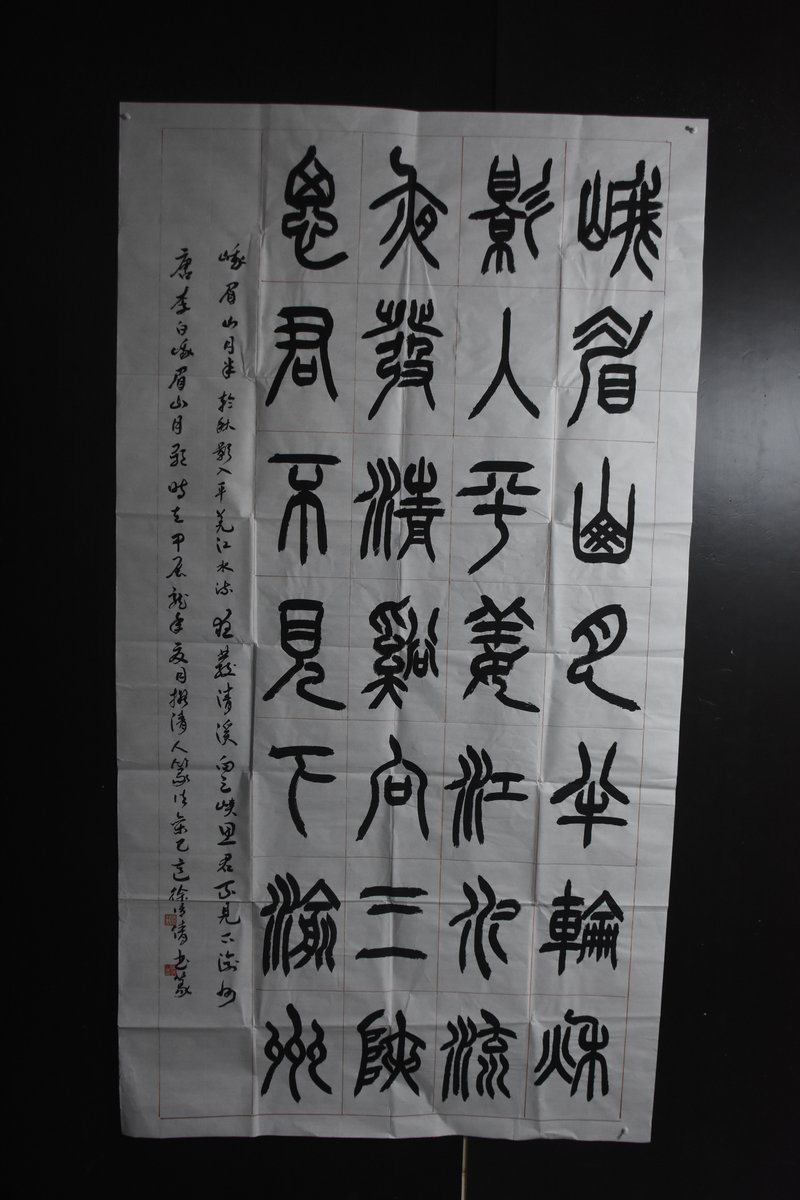 峨眉山月半輪秋
影入平羌江水流
夜發清谿向三峽
思君不見下渝州
峨眉山月半輪秋影入平羌江水流夜發清溪向三峽思君不見下渝州
唐李白峨眉山月歌時在甲辰龍年夏月擬清人篆法並己意徐清倩書篆